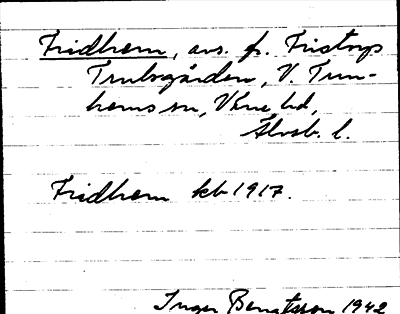 Fridhem, avs. fr. Fristorps
Trulsgården, V. Tun-
hems sn, Väne hd,
Älvsb. l.
Fridhem kb 1917.
Inger Bengtsson 1942